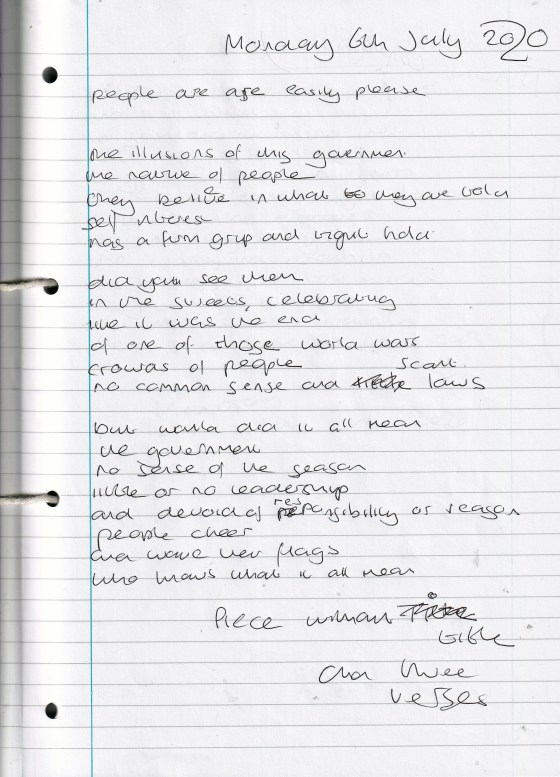 Monday 6th July 2020
people are are easily please
the illusions of this government
the native of people
they believe in what they are told
self interest
has a firm grip and tight hold
did you see them
in the streets, celebrating
like it was the end
of one of those world wars
crowds of people
no common sense and scant laws
but what did it all mean
the government
no sense of the season
little or no leadership
and devoid of responsibility or reason
people cheer
and wave their flags
who knows what it all mean
Piece without
title
and three
verses